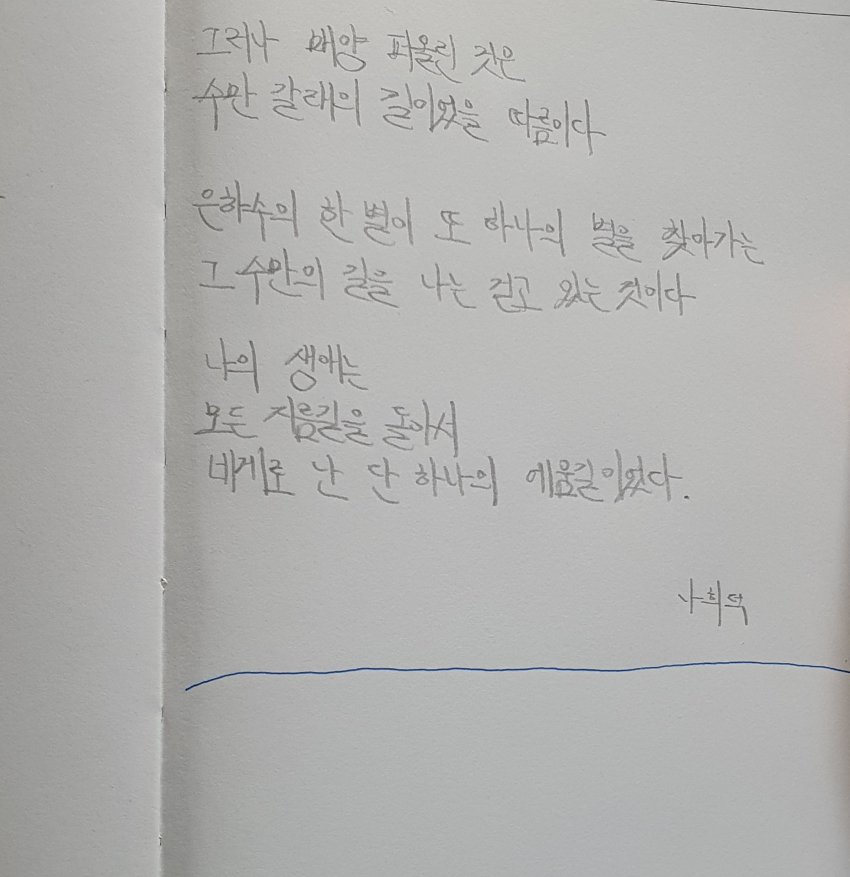 그러나 매양 퍼올린 것은
수만 갈래의 길이었을 따름이다
은하수의 한 별이 또 하나의 별을 찾아가는
그 수만의 길을 나는 걷고 있는 것이다
나의 생애는
모든 지름길을 돌아서
네게로 난 단 하나의 에움길이었다.
나희덕